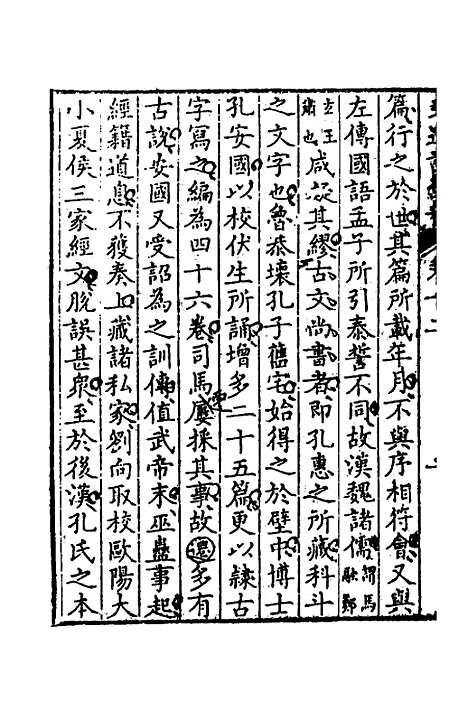 篇行之於世其篇所載年月不與序相符會又與
左傳國語孟子所引泰誓不同故漢魏諸儒謂馬融鄭
玄王肅也咸疑其繆古文尚書者即孔惠之所藏科斗
之文字也魯恭壞孔子舊宅始得之於壁中博士
孔安國以校伏生所誦增多二十五篇更以隸古
字寫之編為四十六卷司馬遷屢採其事故遷多有
古說安國又受詔為之訓傳值武帝末巫蠱事起
經籍道息不獲奏上藏諸私家劉向取校歐陽大
小夏侯三家經文脫誤甚眾至於後漢孔氏之本